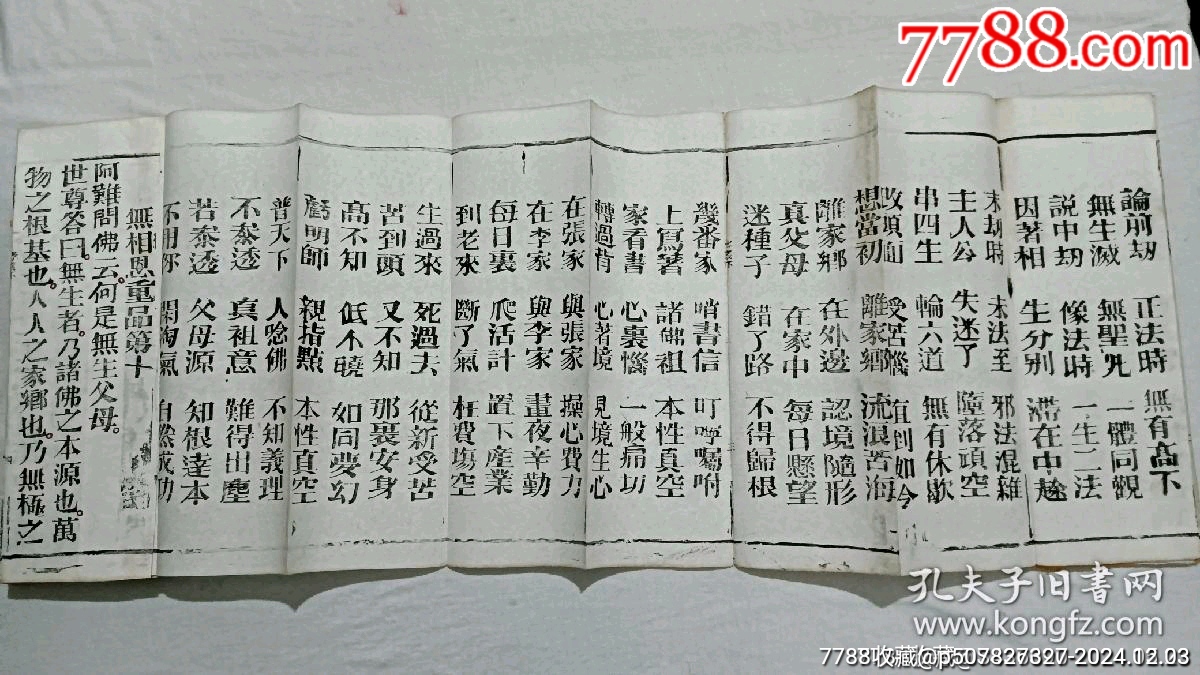 7788.com
論前劫 正法時 無有高下
無生滅 無聖凡 一體同觀
説中劫 像法時 一生二法
因著相 生分別 滯在中趂
末劫時 末法至 邪法混雜
主人公 失迷了 墮落頑空
串四生 輪六道 無有休歇
改頭面 受苦惱 直到如今
想當初 離家鄉 流浪苦海
離家鄉 在外邊 認境隨形
真父母 在家中 每日懸望
迷種子 錯了路 不得歸根
幾番家 哨書信 叮嚀囑咐
上寫著 諸佛祖 本性真空
家看書 心裏惱 一般痛切
轉過背 心著境 見境生心
在張家 與張家 操心費力
在李家 與李家 晝夜辛勤
每日裏 爬活計 置下産業
到老來 斷了氣 枉費塲空
生過來 死過去 從新受苦
苦到頭 又不知 那裏安身
高不知 低不曉 如同夢幻
㢠明師 親指點 本性真空
普天下 人唸佛 不知義理
不叅透 真祖意 難得出塵
若叅透 父母源 知根達本
不用你 閑淘氣 自然成功
無相恩重品第十
阿難問佛云。何是無生父母。
世尊答曰。無生者乃諸佛之本源也。萬
物之根基也。人人之家鄉也。乃無極之
孔夫子旧书网
www.kongfz.com